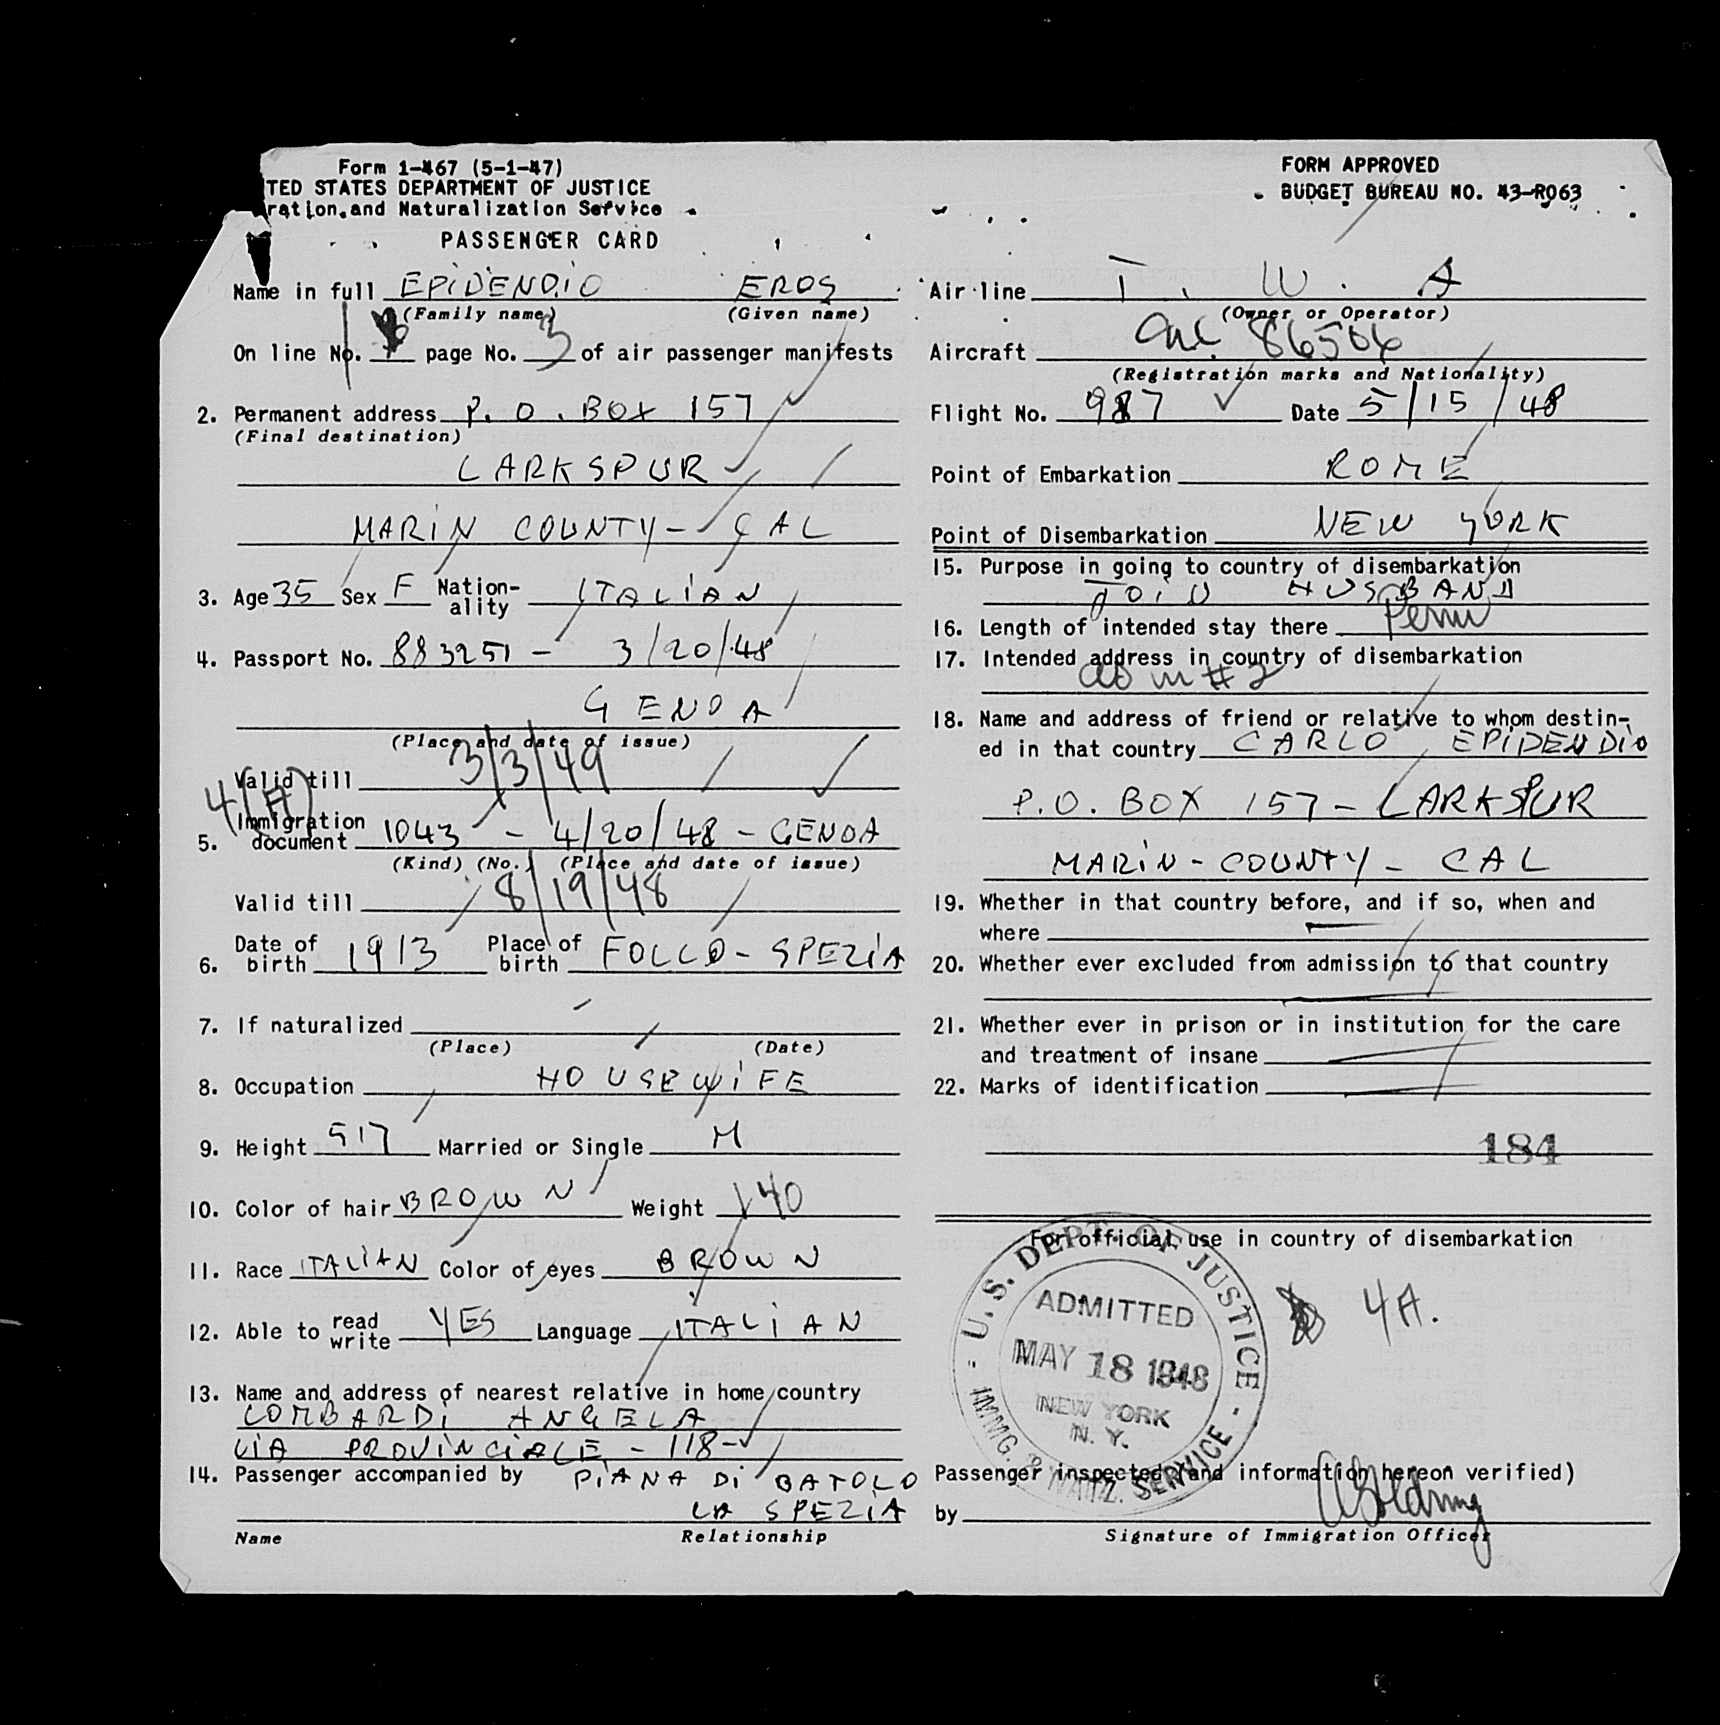 Form 1-467 (5-1-47)
TED STATES DEPARTMENT OF JUSTICE
ration and Naturalization Service
PASSENGER CARD
FORM APPROVED
BUDGET BUREAU NO. 43-R063
Name in full EPIDENDIO EROS
(Family name) (Given name)
On line No. page No. 3 of air passenger manifests
2. Permanent address P. O. BOX 157
(Final destination)
LARKSPUR
MARIN COUNTY - CAL
3. Age 35 Sex F Nation-
ality ITALIAN
4. Passport No. 883251 - 3/20/48
GENOA
(Place and date of issue)
Valid till 3/3/49
4(A)
5. Immigration
document 1043 - 4/20/48 - GENOA
(Kind) (No.) (Place and date of issue)
Valid till 8/19/48
6. Date of
birth 1913 Place of
birth FOLLO - SPEZIA
7. If naturalized
(Place) (Date)
8. Occupation HOUSEWIFE
9. Height 517 Married or Single M
10. Color of hair BROWN Weight 140
11. Race ITALIAN Color of eyes BROWN
12. Able to read
write YES Language ITALIAN
13. Name and address of nearest relative in home country
LOMBARDI ANGELA
VIA PROVINCIALE - 118 -
14. Passenger accompanied by PIANA DI BATOLO
LA SPEZIA
Name Relationship
Air line T. W. A
(Owner or Operator)
Aircraft 86506
(Registration marks and Nationality)
Flight No. 987 Date 5/15/48
Point of Embarkation ROME
Point of Disembarkation NEW YORK
15. Purpose in going to country of disembarkation
JOIN HUSBAND
16. Length of intended stay there Perm
17. Intended address in country of disembarkation
as in #2
18. Name and address of friend or relative to whom destin-
ed in that country CARLO EPIDENDIO
P.O. BOX 157 - LARKSPUR
MARIN - COUNTY - CAL
19. Whether in that country before, and if so, when and
where
20. Whether ever excluded from admission to that country
21. Whether ever in prison or in institution for the care
and treatment of insane
22. Marks of identification
184
For official use in country of disembarkation
U.S. DEPT. OF JUSTICE
ADMITTED
MAY 18 1948
NEW YORK
N. Y.
IMMG. & NATZ. SERVICE
4A.
Passenger inspected (and information hereon verified)
by
Signature of Immigration Officer